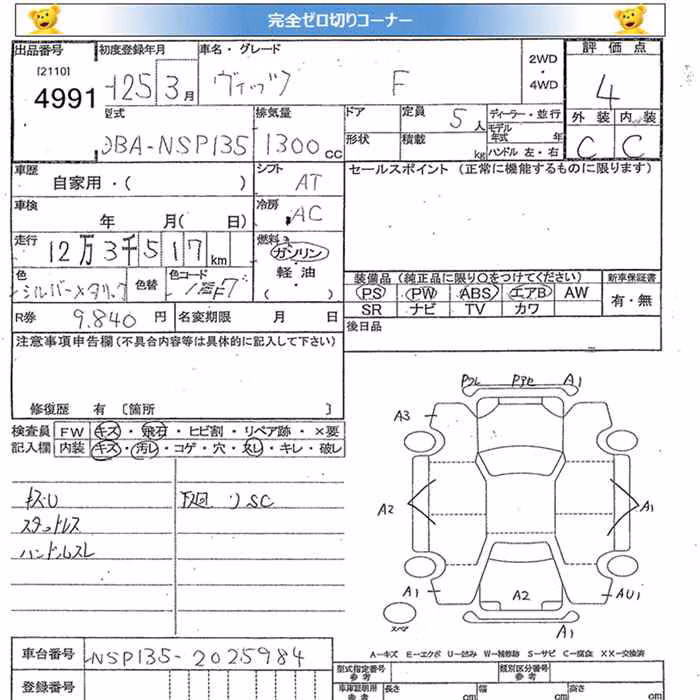 完全ゼロ切りコーナー
出品番号 初度登録年月 車名・グレード 2WD・4WD 評価点
[2110]
4991 H25 3月 ヴィッツ F 4
型式 排気量 ドア 定員 5人 ディーラー・並行 外装 内装
DBA-NSP135 1300cc 形状 積載 kg モデル年式 年 ハンドル 左・右 C C
車歴 シフト セールスポイント (正常に機能するものに限ります)
自家用・( ) AT
車検 冷房
年 月( 日) AC
走行 燃料
12万3千517km ガソリン
色 色替 色コード 軽油
シルバーメタリック 1F7 ( )
装備品 (純正品に限り○をつけてください) 新車保証書
PS PW ABS エアB AW 有・無
SR ナビ TV カワ
R券 9.840円 名変期限 月 日 後日品
注意事項申告欄(不具合内容等は具体的に記入して下さい)
修復歴 有 [箇所 ]
検査員 FW キズ・飛石・ヒビ割・リペア跡・×要
記入欄 内装 キズ・汚レ・コゲ・穴・スレ・キレ・破レ
キズU 下廻りSC
スタッドレス
ハンドルスレ
A1
A3
A2 A1
A1 A2 AU1
スペア A1
A-キズ E-エクボ U-凹み W-補修跡 S-サビ C-腐食 XX-交換済
車台番号 NSP135-2025984
型式指定番号 参考 類別区分番号 参考
登録番号 車庫証明用 参考 長さ cm 幅 cm 高さ cm